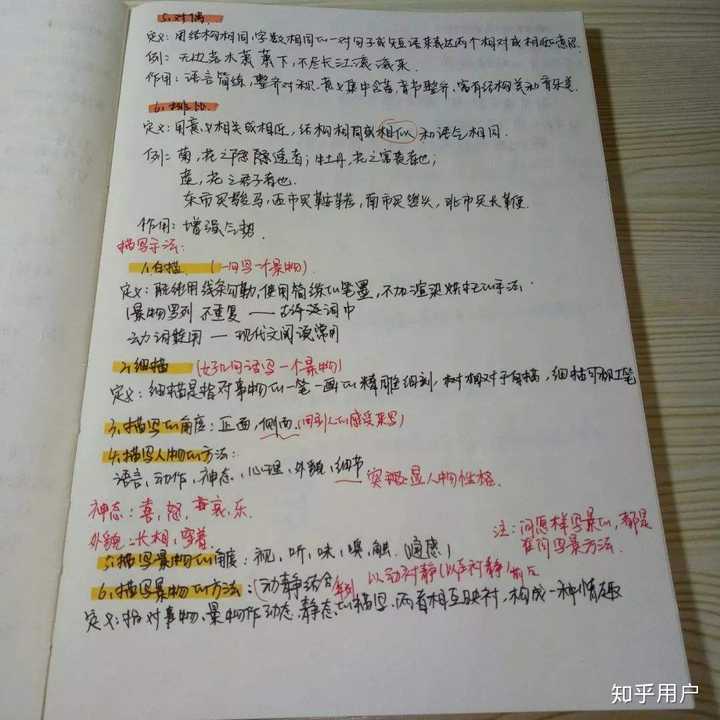 5. 对偶
定义：用结构相同，字数相同的一对句子或短语来表达两个相对或相近意思
例：无边落木萧萧下，不尽长江滚滚来。
作用：语言简练，整齐对称，意义集中含蓄，音节整齐，富有结构美和音乐美。
6. 排比
定义：用意义相关或相近，结构相同或相似和语气相同.
例：菊，花之隐隐逸者；牡丹，花之富贵者也；
莲，花之君子者也.
东市买骏马，西市买鞍鞯，南市买辔头，北市买长鞭.
作用：增强气势
描写手法：
1. 白描 （一句写一个景物）
定义：用线条勾勒，使用简练的笔墨，不加渲染烘托的手法.
景物罗列 不重复 —— 古诗词中
动词数用 — 现代文阅读常用
2. 细描 （好几句话写一个景物）
定义：细描是指对事物的一笔一画的精雕细刻，相对于白描，细描可称工笔
3. 描写的角度：正面，侧面.（回到人的感受来思）
4. 描写人物的方法：
语言，动作，神态，心理，外貌，细节 —— 突显人物性格.
神态：喜，怒，哀，乐.
外貌：长相，穿着.
注：问怎样写景的，都是
在问写景方法.
5. 描写景物的角度：视，听，味，嗅，触.（通感）
6. 描写景物的方法：（动静结合 以动对静（以声对静）
定义：指对事物、景物作动态、静态的描写，两者相互映衬，构成一种情趣
知乎用户